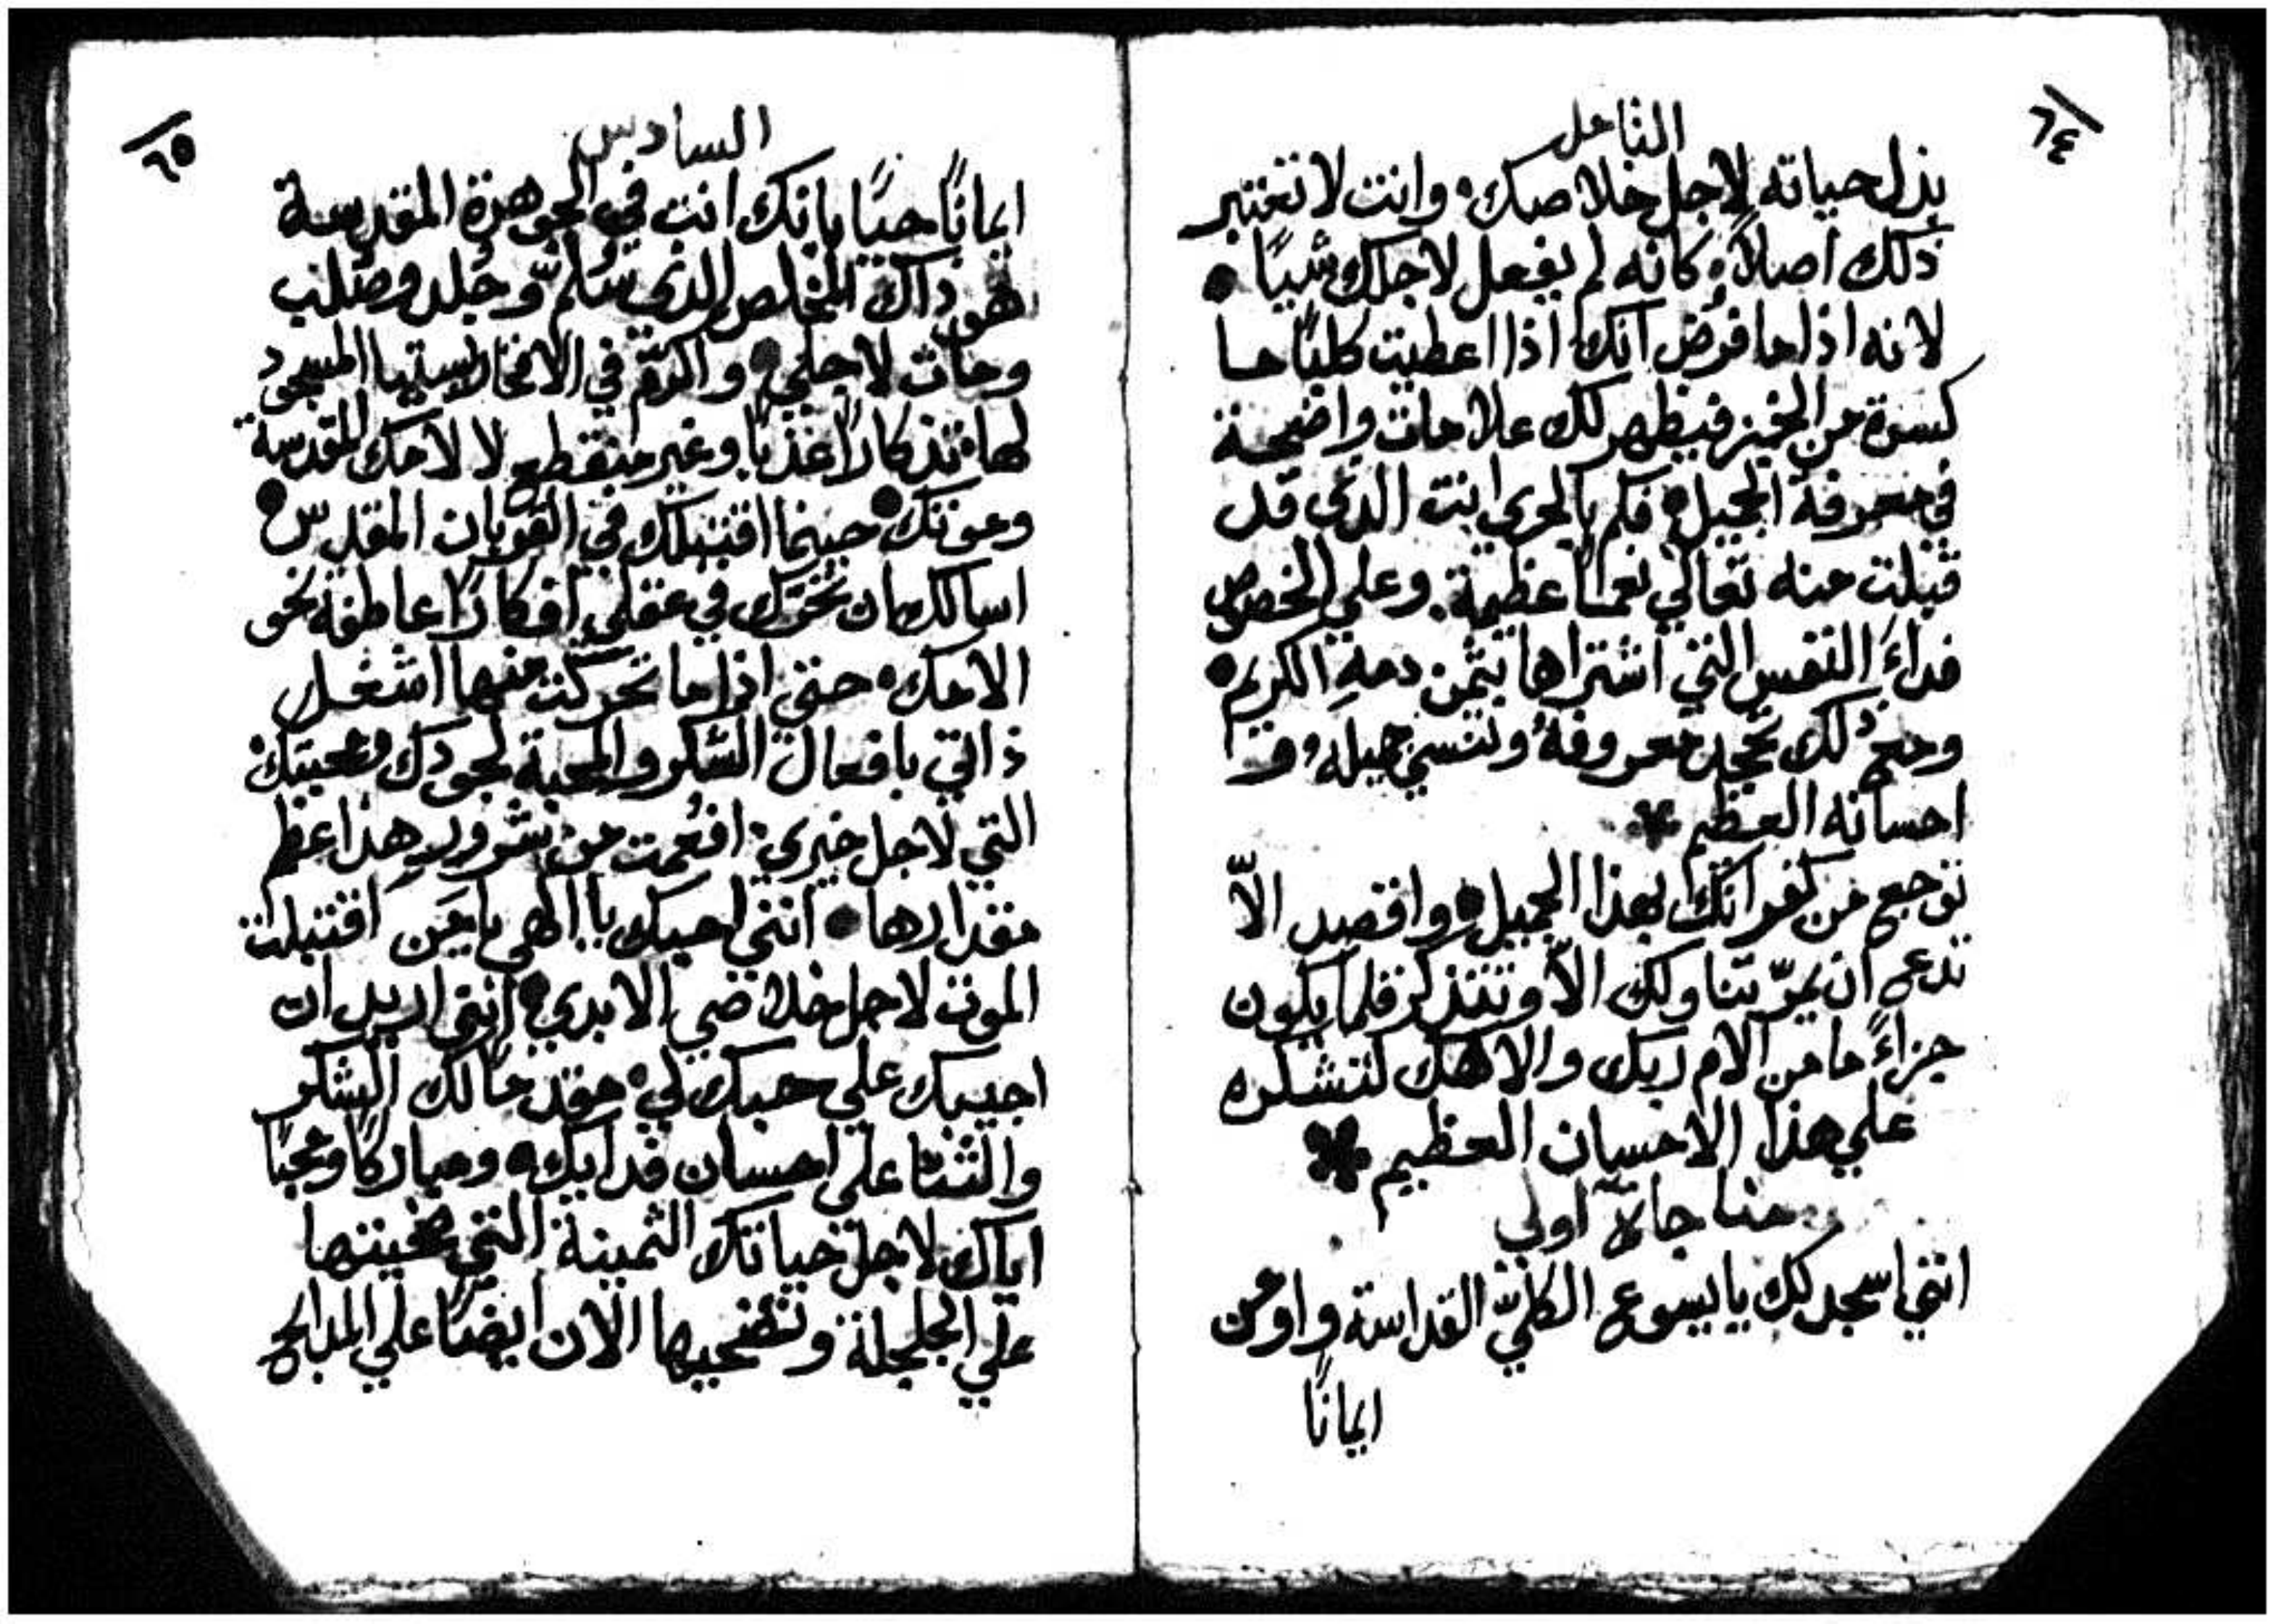 ٦٤
التامل
بذل حياته لاجل خلاصك، وانت لا تعتبر
ذلك اصلاً، كانه لم يفعل لاجلك شياً •
لانه اذا ما فرُض انك اذا اعطيت كلباً ما
كسرة من الخبز فيظهر لك علامات واضحة
في معرفة الجميل • فكم بالحري انت الذي قد
قبلت منه تعالي نعماً عظيمة. وعلي الخصوص
فداءَ النفس التي اشتراها بثمن دمهِ الكريم •
ومع ذلك تجحد معروفهُ وتنسي جميله، و
احسانه العظيم
توجع من كفرانك بهذا الجميل • واقصد الاّ
تدع ان يمرّ تناولك الاّ وتتذكر فلما يكون
جزاءً ما من الام ربك والاهك لتشكره
علي هذا الاحسان العظيم
مناجاةٌ اولي
انني اسجد لك يا يسوع الكليّ القداسة واومن
ايماناً
٦٥
السادس
ايماناً حياً بانك انت في الجوهرة المقدسة
هو ذاك المخلص الذي سُلمّ وجُلد وصُلب
ومات لاجلي • واكرّم في الافخارستيا المسجود
لها، تذكاراً عذباً وغير منقطع لالامك المقدسة
وموتك • حينما اقتبلك في القربان المقدس •
اسالك ان تحرّك في عقلي افكاراً عاطفة نحو
الامك، حتي اذا ما تحركت منها اشغل
ذاتي بافعال الشكر والمحبة لجودك ومحبتك،
التي لاجل خيري، افعمت من هذا عظم
مقدارها • انني احبك يا الهي يا مَن اقتبلت
الموت لاجل خلاصي الابدي • انني اريد ان
اجيبك علي حبك لي، مقدماً لك الشكر
والثنا علي احسان فدايك • ومباركاً ومحباً
اياك لاجل حياتك الثمينة التي ضحيتها
علي الجلجلة وتضحيها الان ايضاً علي المذابح